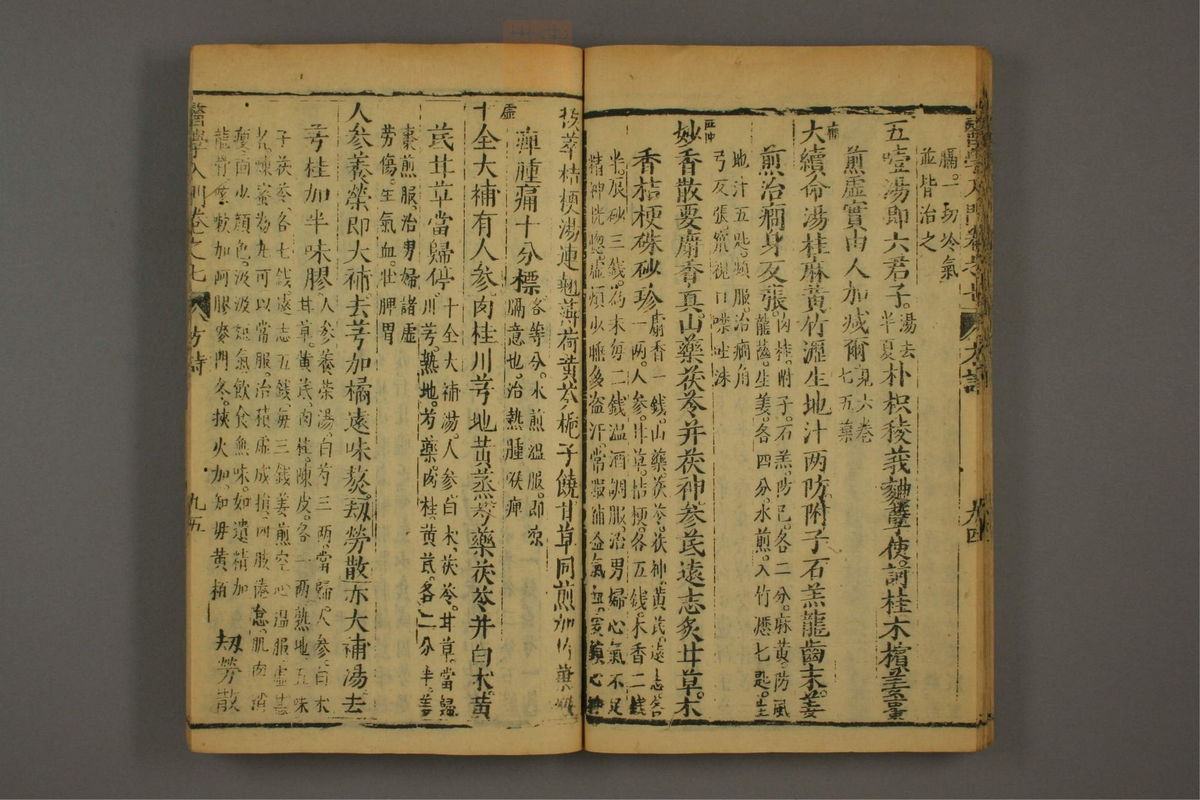 膈。一切冷氣
並皆治之
五噎湯即六君子。湯去半夏朴枳稜莪麯 使。訶桂木檳姜棗
煎虛實由人加减爾見六卷七五藥
大續命湯桂麻黃竹瀝生地汁兩防。附子石羔龍齒末。姜
煎治癇身反張。肉桂。附子。石羔。防已。各二分。麻黃。防風
龍齒。生姜。各四分。水煎。入竹瀝七匙。生
地汁五匙。頻服。治癇角
弓反張。竄視口噤吐沫
妙香散要麝香真。山藥茯苓并茯神參芪遠志炙甘草。木
香桔梗硃砂珍麝香一錢。山藥。茯苓。茯神。黃芪。遠志。各
一兩。人參。甘草。桔梗。各五錢。木香二錢
半。辰砂三錢。為末每二錢温酒調服。治男婦心氣不足
精神恍惚虛煩少睡多盗汗。常服補益氣血。安鎮心神
拔萃桔梗湯連翹薄荷黃芩梔子饒甘草同煎加竹葉
腫痛十分標各等分。水煎温服。即凉
膈意也。治熱腫喉痺
虛
十全大補有人參肉桂川芎地黃蒸芍藥茯苓并白朮。黃
芪甘草當歸停。十全大補湯。人參白朮、茯苓。甘草。當歸
川芎。熟地。芍藥。肉桂。黃芪。各二分半。姜
棗煎服。治男婦諸虛
勞傷。生氣血。壯脾胃
人參養榮即大補去芎加橘遠味熬。刼勞散亦大補湯去
芎桂加半味膠。人參養榮湯。白芍三兩。當歸。人參。白朮
甘草。黃芪。肉桂。陳皮。各一兩熟地。五味
子茯苓各七錢遠志五錢每三錢姜煎空心温服虛甚
者煉蜜為丸可以常服。治積虛成損。四肢倦怠。肌肉消
瘦。面少顏色。汲汲短氣飲食無味。如遺精加
龍骨咳嗽加阿膠麥門冬。挾火加知母黃栢
刼勞散
醫學入門卷之七
方詩
九五
九四